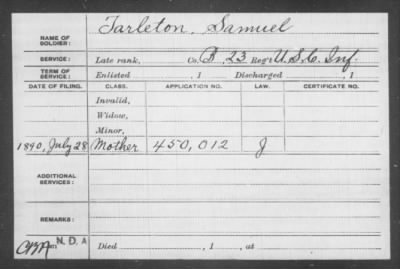 NAME OF SOLDIER: Tarleton, Samuel
SERVICE: Late rank, Co. B, 23 Reg't U.S.C. Inf.
TERM OF SERVICE: Enlisted , 1 Discharged , 1
DATE OF FILING. CLASS. APPLICATION NO. LAW. CERTIFICATE NO.
Invalid,
Widow,
Minor,
1890, July 28, Mother 450,012 J
ADDITIONAL SERVICES:
REMARKS:
N. D. A
Died , 1 , at